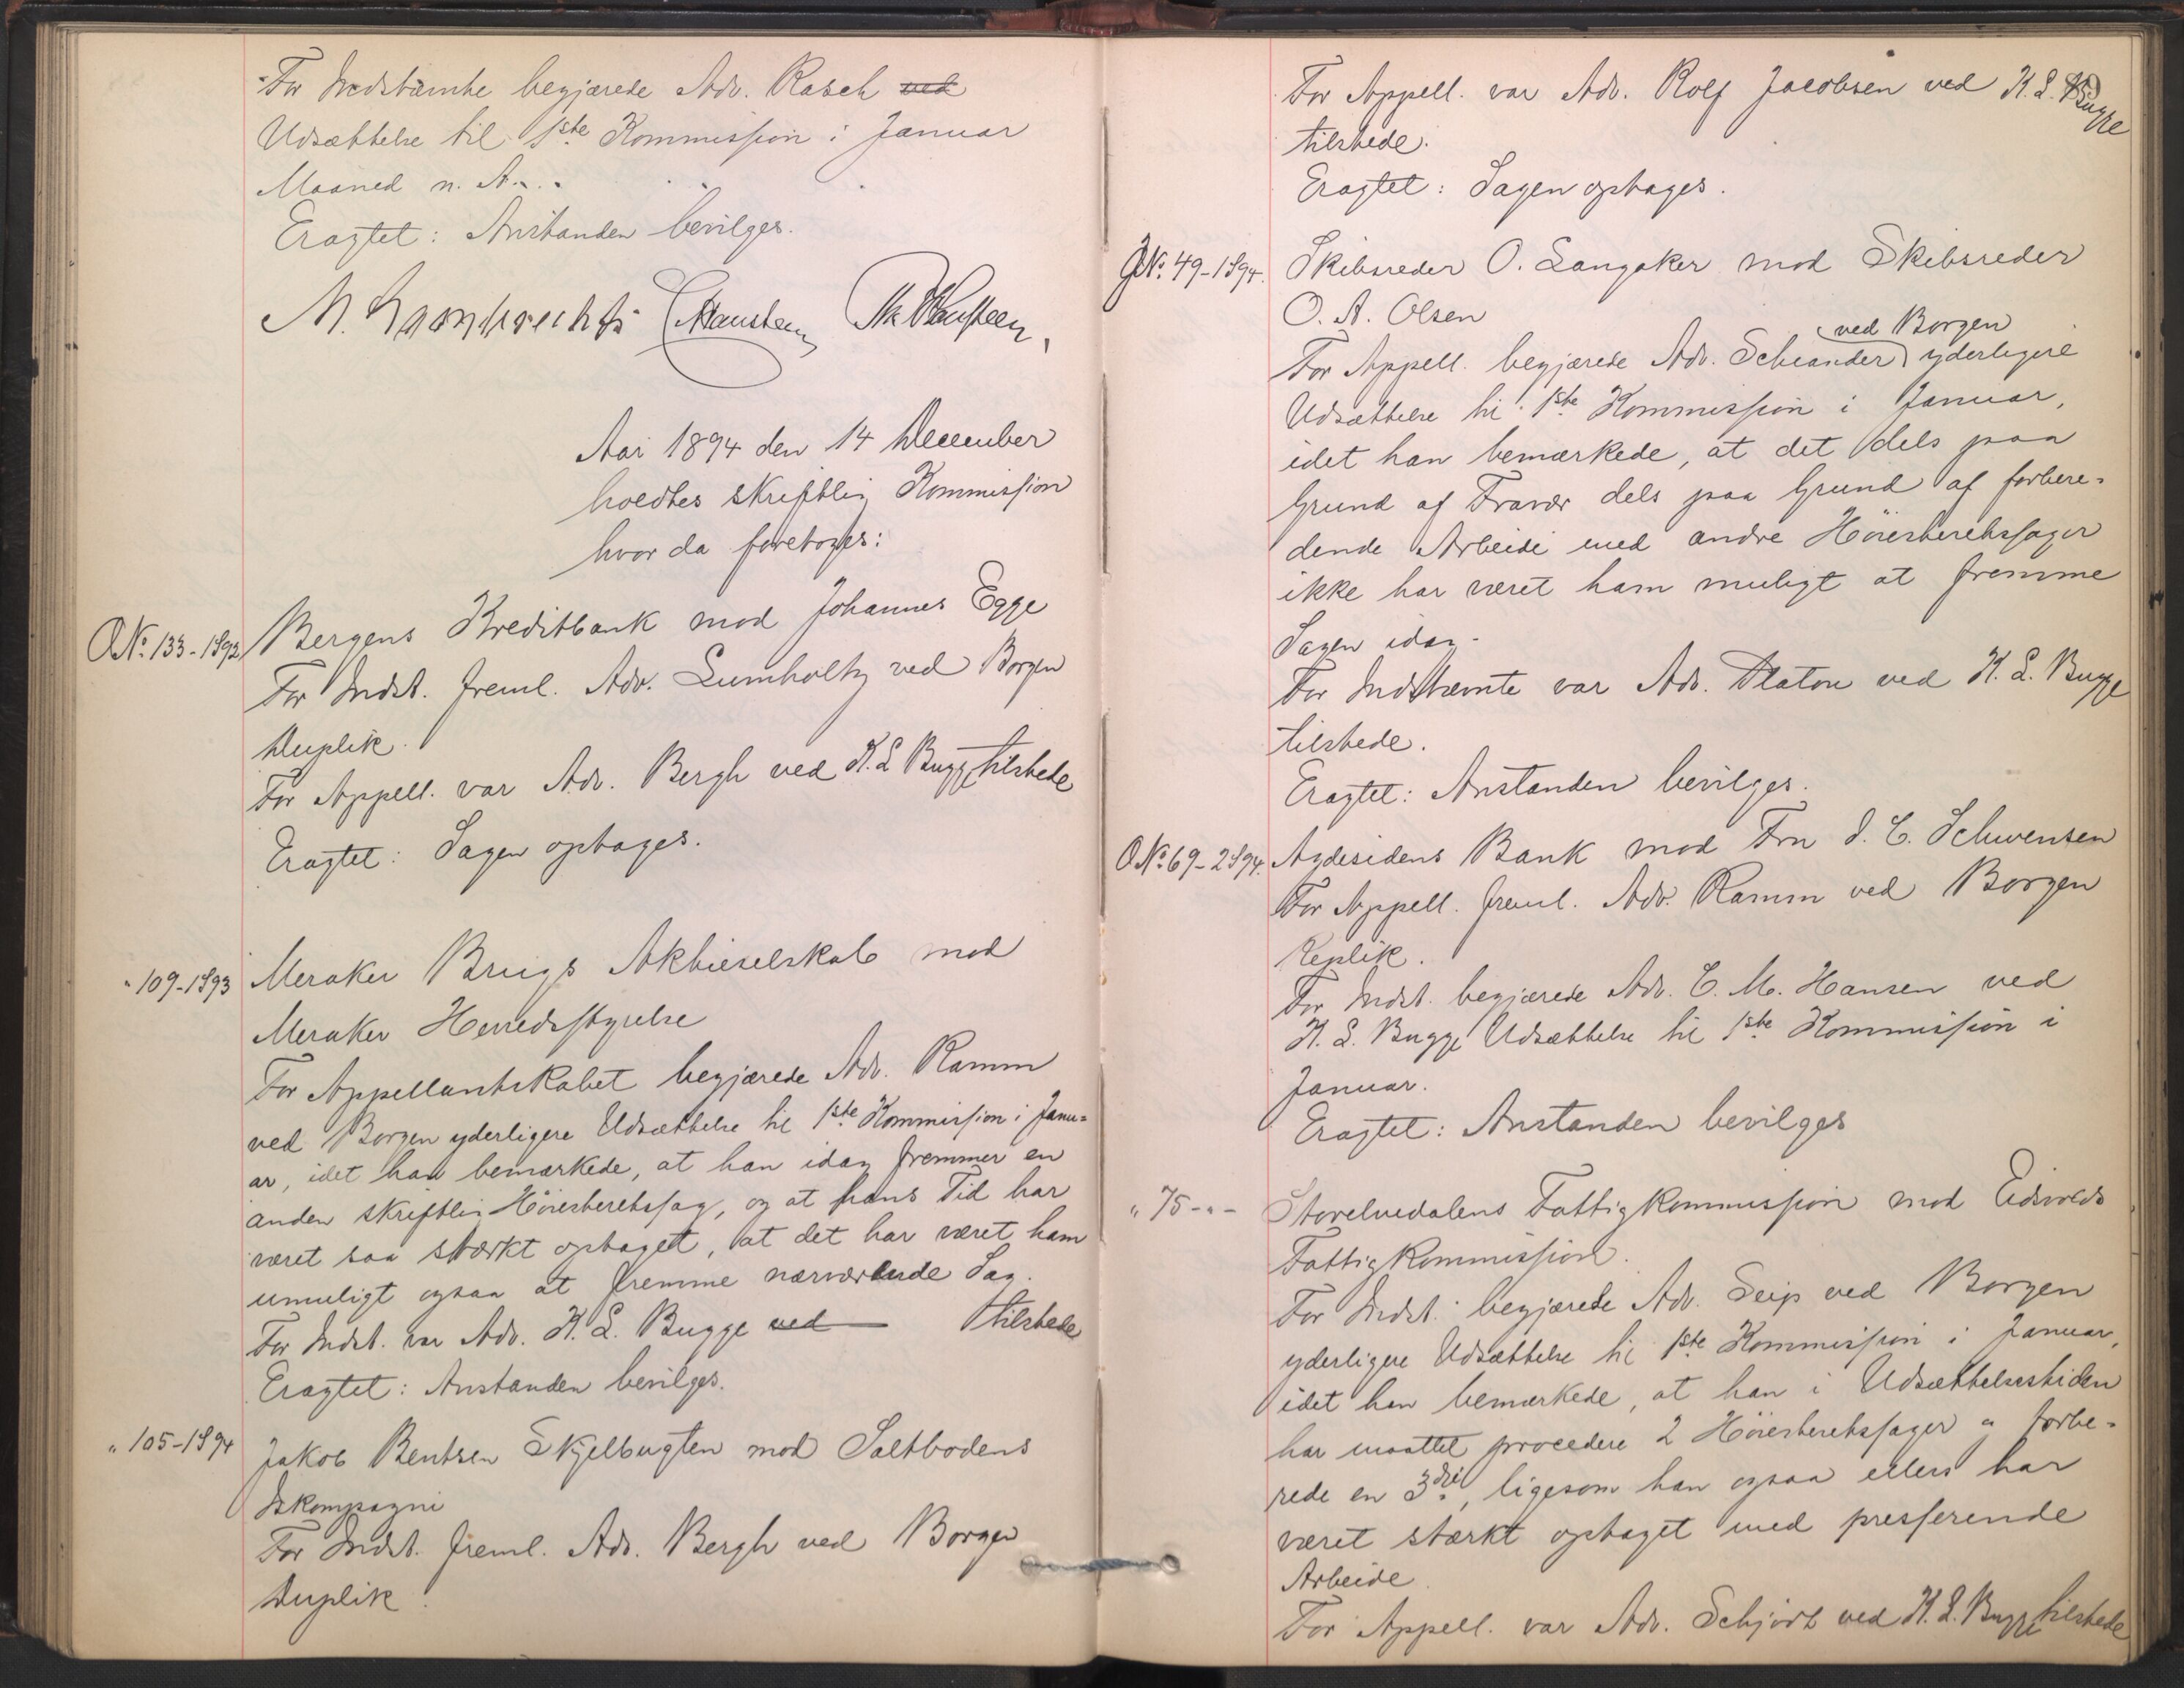 For Indstævnte begjærede Adv. Rasch ved
Udsættelse til 1ste Kommission i Januar
Maaned n. A.
Eragtet: Anstanden bevilges.
Aar 1894 den 14 December
holdtes skriftlig Kommission
hvor da foretoges:
O№ 133-1892
Bergens Kreditbank mod Johannes Egge
For Indst. freml. Adv. Lumholtz ved Borgen
Duplik.
For Appell. var Adv. Bergh ved K. L Bugge tilstede
Eragtet: Sagen optages.
" 109-1893
Meraker Brugs Aktieselskab mod
Meraker Herredsstyrelse
For Appellantskabet begjærede Adv. Ramm
ved Borgen yderligere Udsættelse til 1ste Kommission i Janu=
ar, idet han bemærkede, at han idag fremmer en
anden skriftlig Høiesteretssag, og at hans Tid har
været saa stærkt optaget, at det har været ham
umuligt ogsaa at fremme nærværende Sag.
For Indst. var Adv. K. L. Bugge ved tilstede
Eragtet: Anstanden bevilges.
" 105-1894
Jakob Bentsen Skjelbugten mod Saltbodens
Iskompagni
For Indst. freml. Adv. Bergh ved Borgen
Duplik.
For Appell. var Adv. Rolf Jacobsen ved K. L. Bugge
tilstede.
Eragtet: Sagen optages.
O№ 49-1894.
Skibsreder O. Langaker mod Skibsreder
O. A. Olsen
ved Borgen
For Appell. begjærede Adv. Scheander yderligere
Udsættelse til 1ste Kommission i Januar,
idet han bemærkede, at det dels paa
Grund af Fravær dels paa Grund af forbere=
dende Arbeide med andre Høiesteretssager
ikke har været ham muligt at fremme
Sagen idag.
For Indstævnte var Adv. Platou ved K. L. Bugge
tilstede.
Eragtet: Anstanden bevilges.
O№ 69-2894.
Agdesidens Bank mod Fru J. C. Schwensen
For Appell. freml. Adv. Ramm ved Borgen
Replik.
For Indst. begjærede Adv. C. M. Hansen ved
K. L. Bugge Udsættelse til 1ste Kommission i
Januar.
Eragtet: Anstanden bevilges
" 75-"-
Storelvedalens Fattigkommission mod Eidsvolds
Fattigkommission.
For Indst. begjærede Adv. Seip ved Borgen
yderligere Udsættelse til 1ste Kommission i Januar,
idet han bemærkede, at han i Udsættelsestiden
har maattet procedere 2 Høiesteretssager og forbe=
rede en 3die, ligesom han ogsaa ellers har
været stærkt optaget med presserende
Arbeide.
For Appell. var Adv. Schjødt ved K. L. Bugge tilstede